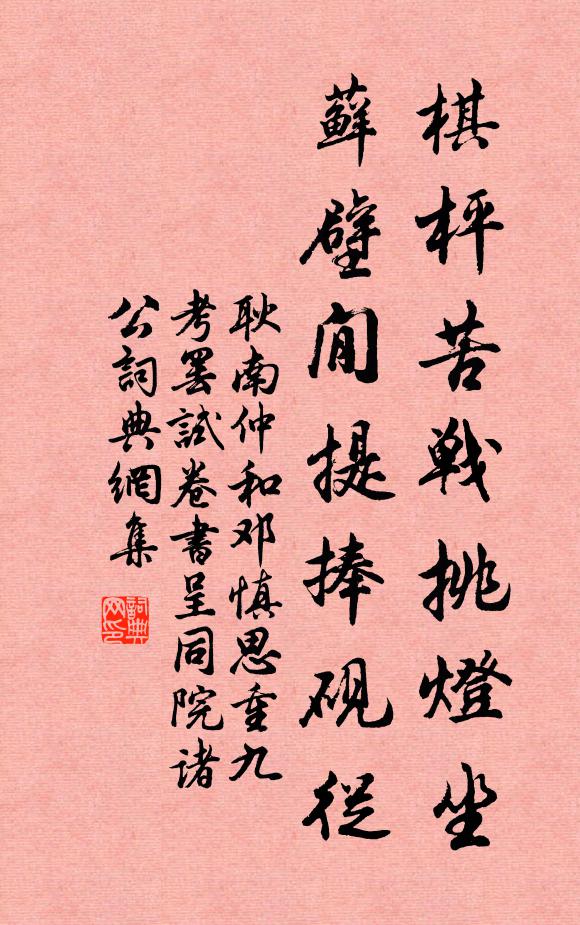 棋枰苦戦挑燈坐
蘚壁間提捧硯從
耿南仲和邓慎思重九
考罢試卷書呈同院诸
公詞典網集
詞典
网印